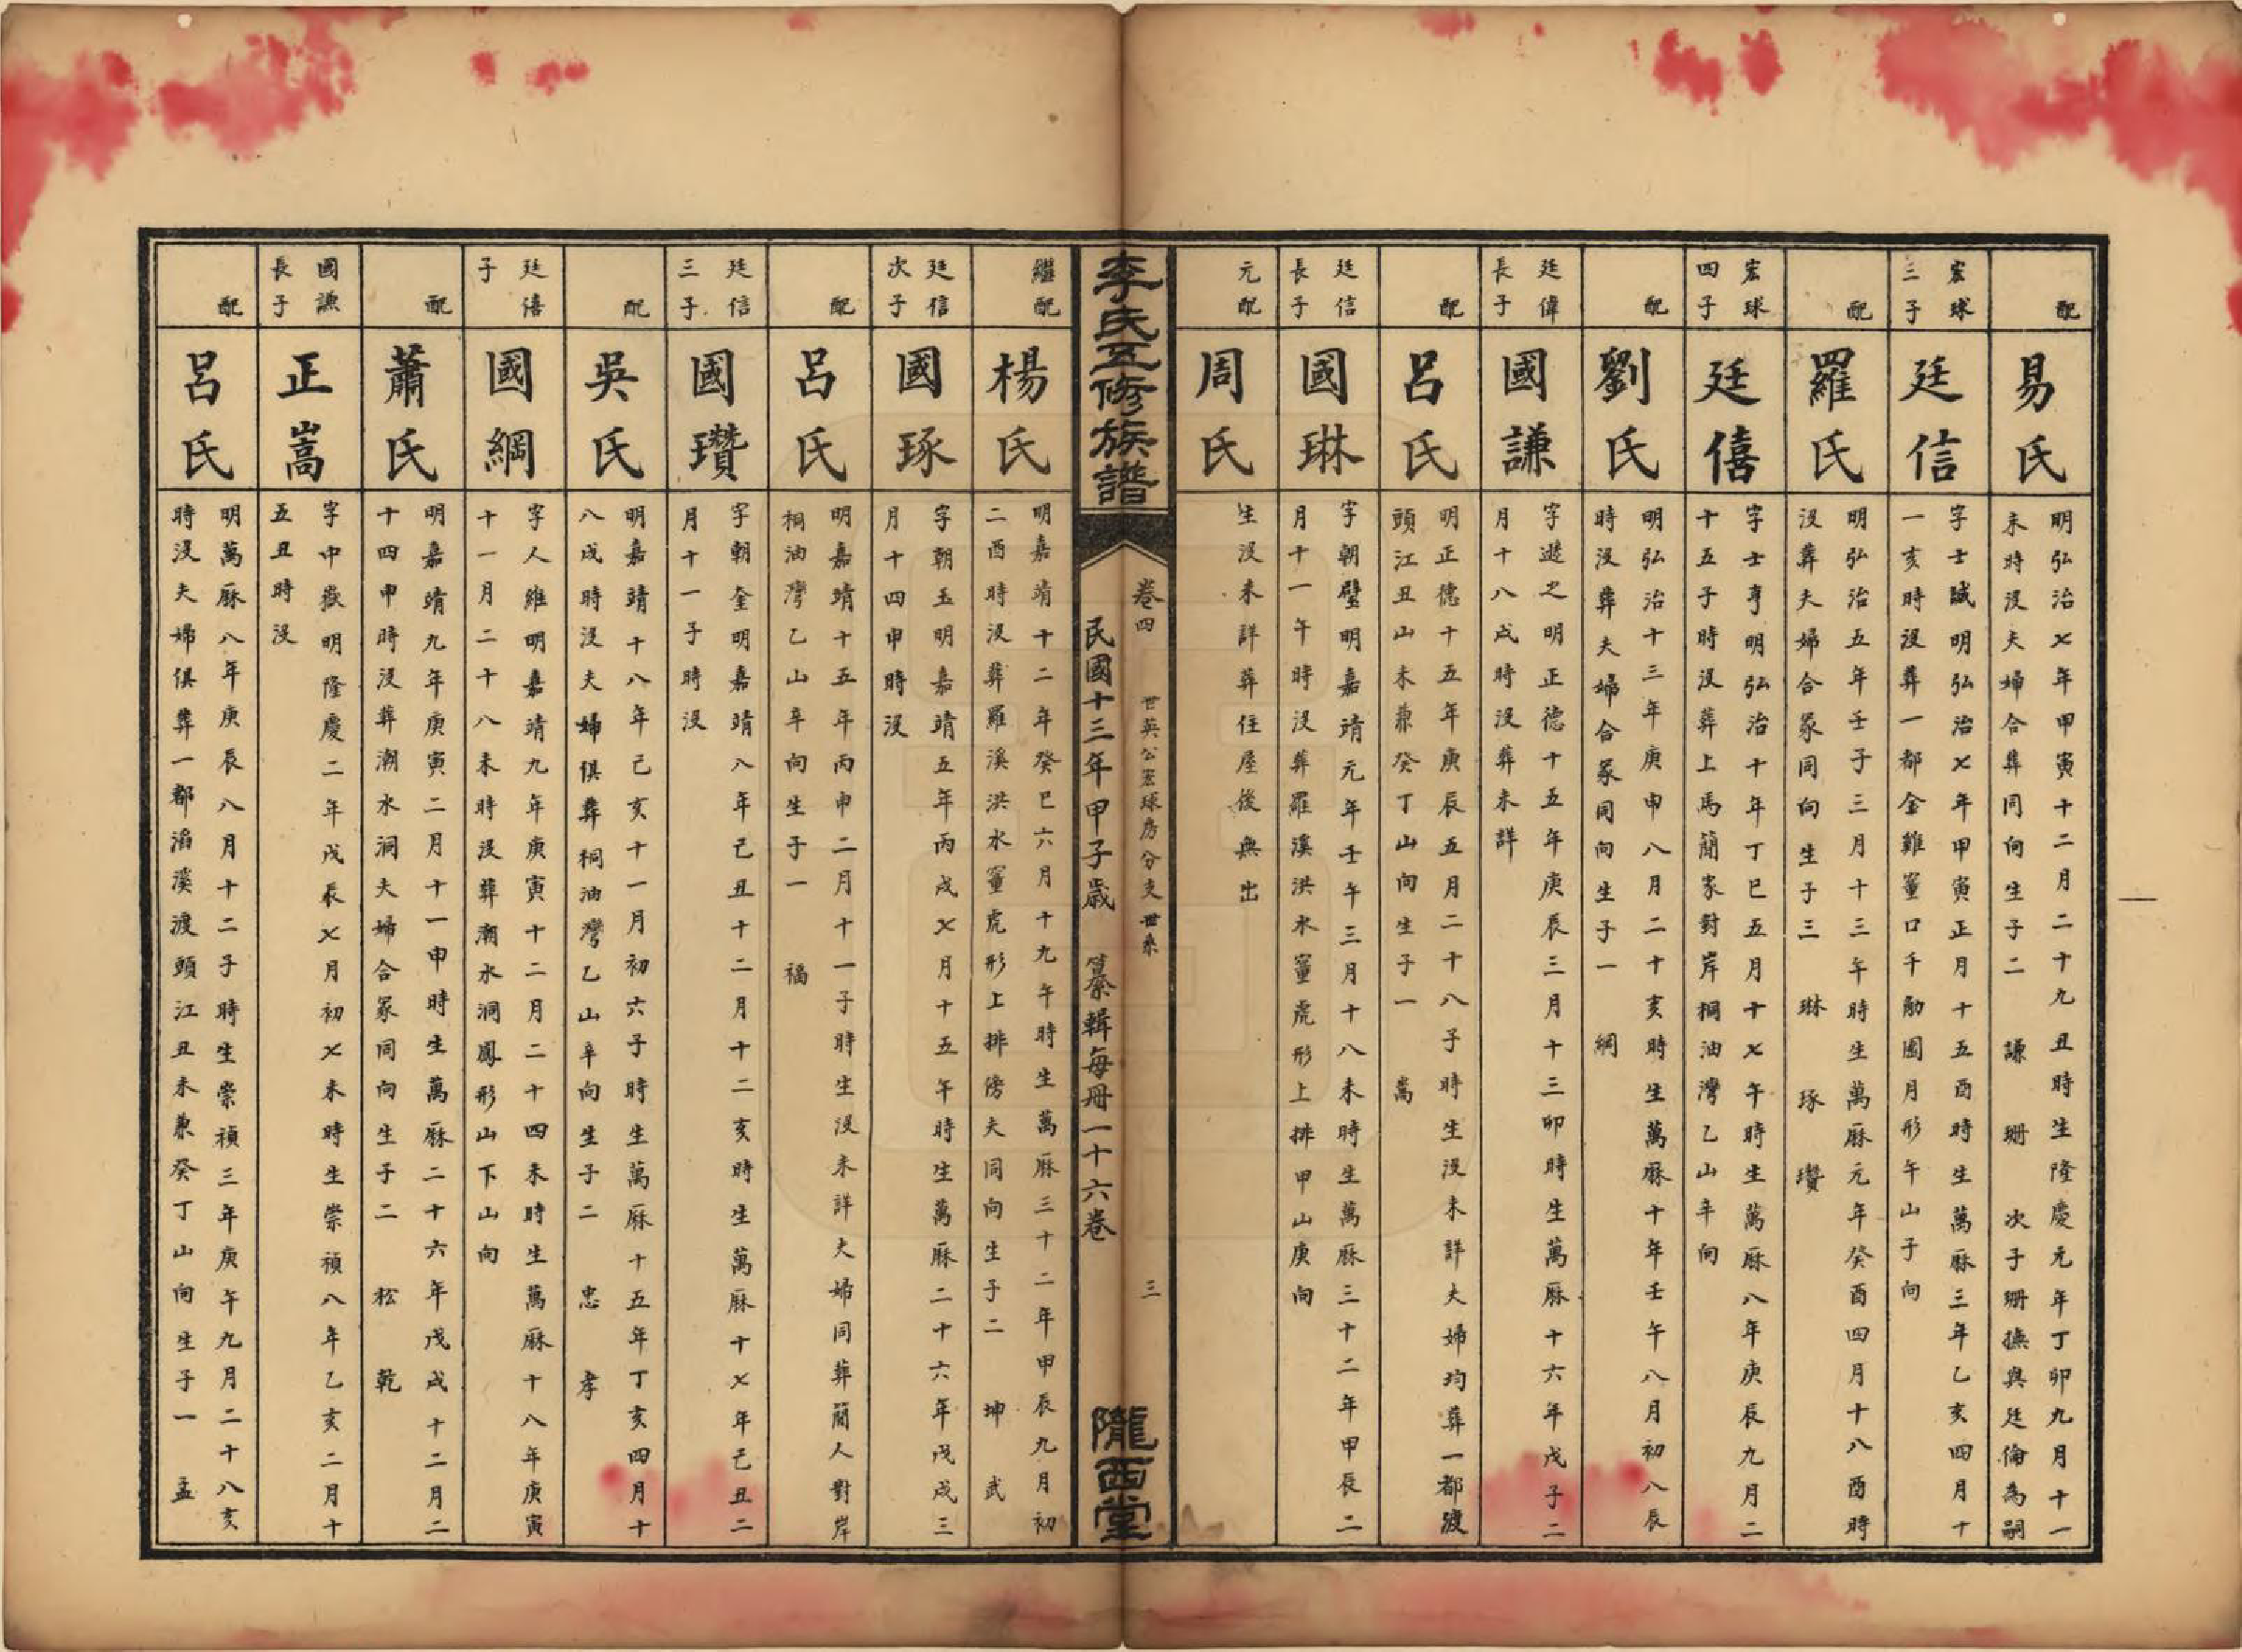 配
易氏
明弘治七年甲寅十二月二十九丑時生隆慶元年丁卯九月十一
未時沒夫婦合葬同向生子二 謙 珊 次子珊撫與廷倫為嗣
宏球
三子
廷信
字士瑊明弘治七年甲寅正月十五酉時生萬厤三年乙亥四月十
一亥時沒葬一都金雞薹口千觔園月形午山子向
配
羅氏
明弘治五年壬子三月十三午時生萬厤元年癸酉四月十八酉時
沒葬夫婦合冢同向生子三 琳 琢 瓚
宏球
四子
廷僖
字士亨明弘治十年丁巳五月十七午時生萬厤八年庚辰九月二
十五子時沒葬上馬簡家對岸桐油灣乙山辛向
配
劉氏
明弘治十三年庚申八月二十亥時生萬厤十年壬午八月初八辰
時沒葬夫婦合冢同向生子一 綱
廷偉
長子
國謙
字遜之明正德十五年庚辰三月十三卯時生萬厤十六年戊子二
月十八戌時沒葬未詳
配
呂氏
明正德十五年庚辰五月二十八子時生沒未詳夫婦均葬一都渡
頭江丑山未兼癸丁山向生子一 嵩
廷信
長子
國琳
字朝璧明嘉靖元年壬午三月十八未時生萬厤三十二年甲辰二
月十一午時沒葬羅溪洪水薹虎形上排甲山庚向
元配
周氏
生沒未詳葬住屋後無出
李氏五修族譜
卷四 世英公宏球房分支世系 三
民國十三年甲子歲 纂輯每冊一十六卷
隴西堂
繼配
楊氏
明嘉靖十二年癸巳六月十九午時生萬厤三十二年甲辰九月初
二酉時沒葬羅溪洪水薹虎形上排傍夫同向生子二 坤 武
廷信
次子
國琢
字朝玉明嘉靖五年丙戌七月十五午時生萬厤二十六年戊戌三
月十四申時沒
配
呂氏
明嘉靖十五年丙申二月十一子時生沒未詳夫婦同葬簡人對岸
桐油灣乙山辛向生子一 福
廷信
三子
國瓚
字朝奎明嘉靖八年己丑十二月十二亥時生萬厤十七年己丑二
月十一子時沒
配
吳氏
明嘉靖十八年己亥十一月初六子時生萬厤十五年丁亥四月十
八戌時沒夫婦俱葬桐油灣乙山辛向生子二 忠 孝
廷僖
子
國綱
字人維明嘉靖九年庚寅十二月二十四未時生萬厤十八年庚寅
十一月二十八未時沒葬潮水洞鳳形山下山向
配
蕭氏
明嘉靖九年庚寅二月十一申時生萬厤二十六年戊戌十二月二
十四申時沒葬潮水洞夫婦合冢同向生子二 松 乾
國謙
長子
正嵩
字中嶽明隆慶二年戊辰七月初七未時生崇禎八年乙亥二月十
五丑時沒
配
呂氏
明萬厤八年庚辰八月十二子時生崇禎三年庚午九月二十八亥
時沒夫婦俱葬一都滔溪渡頭江丑未兼癸丁山向生子一 孟